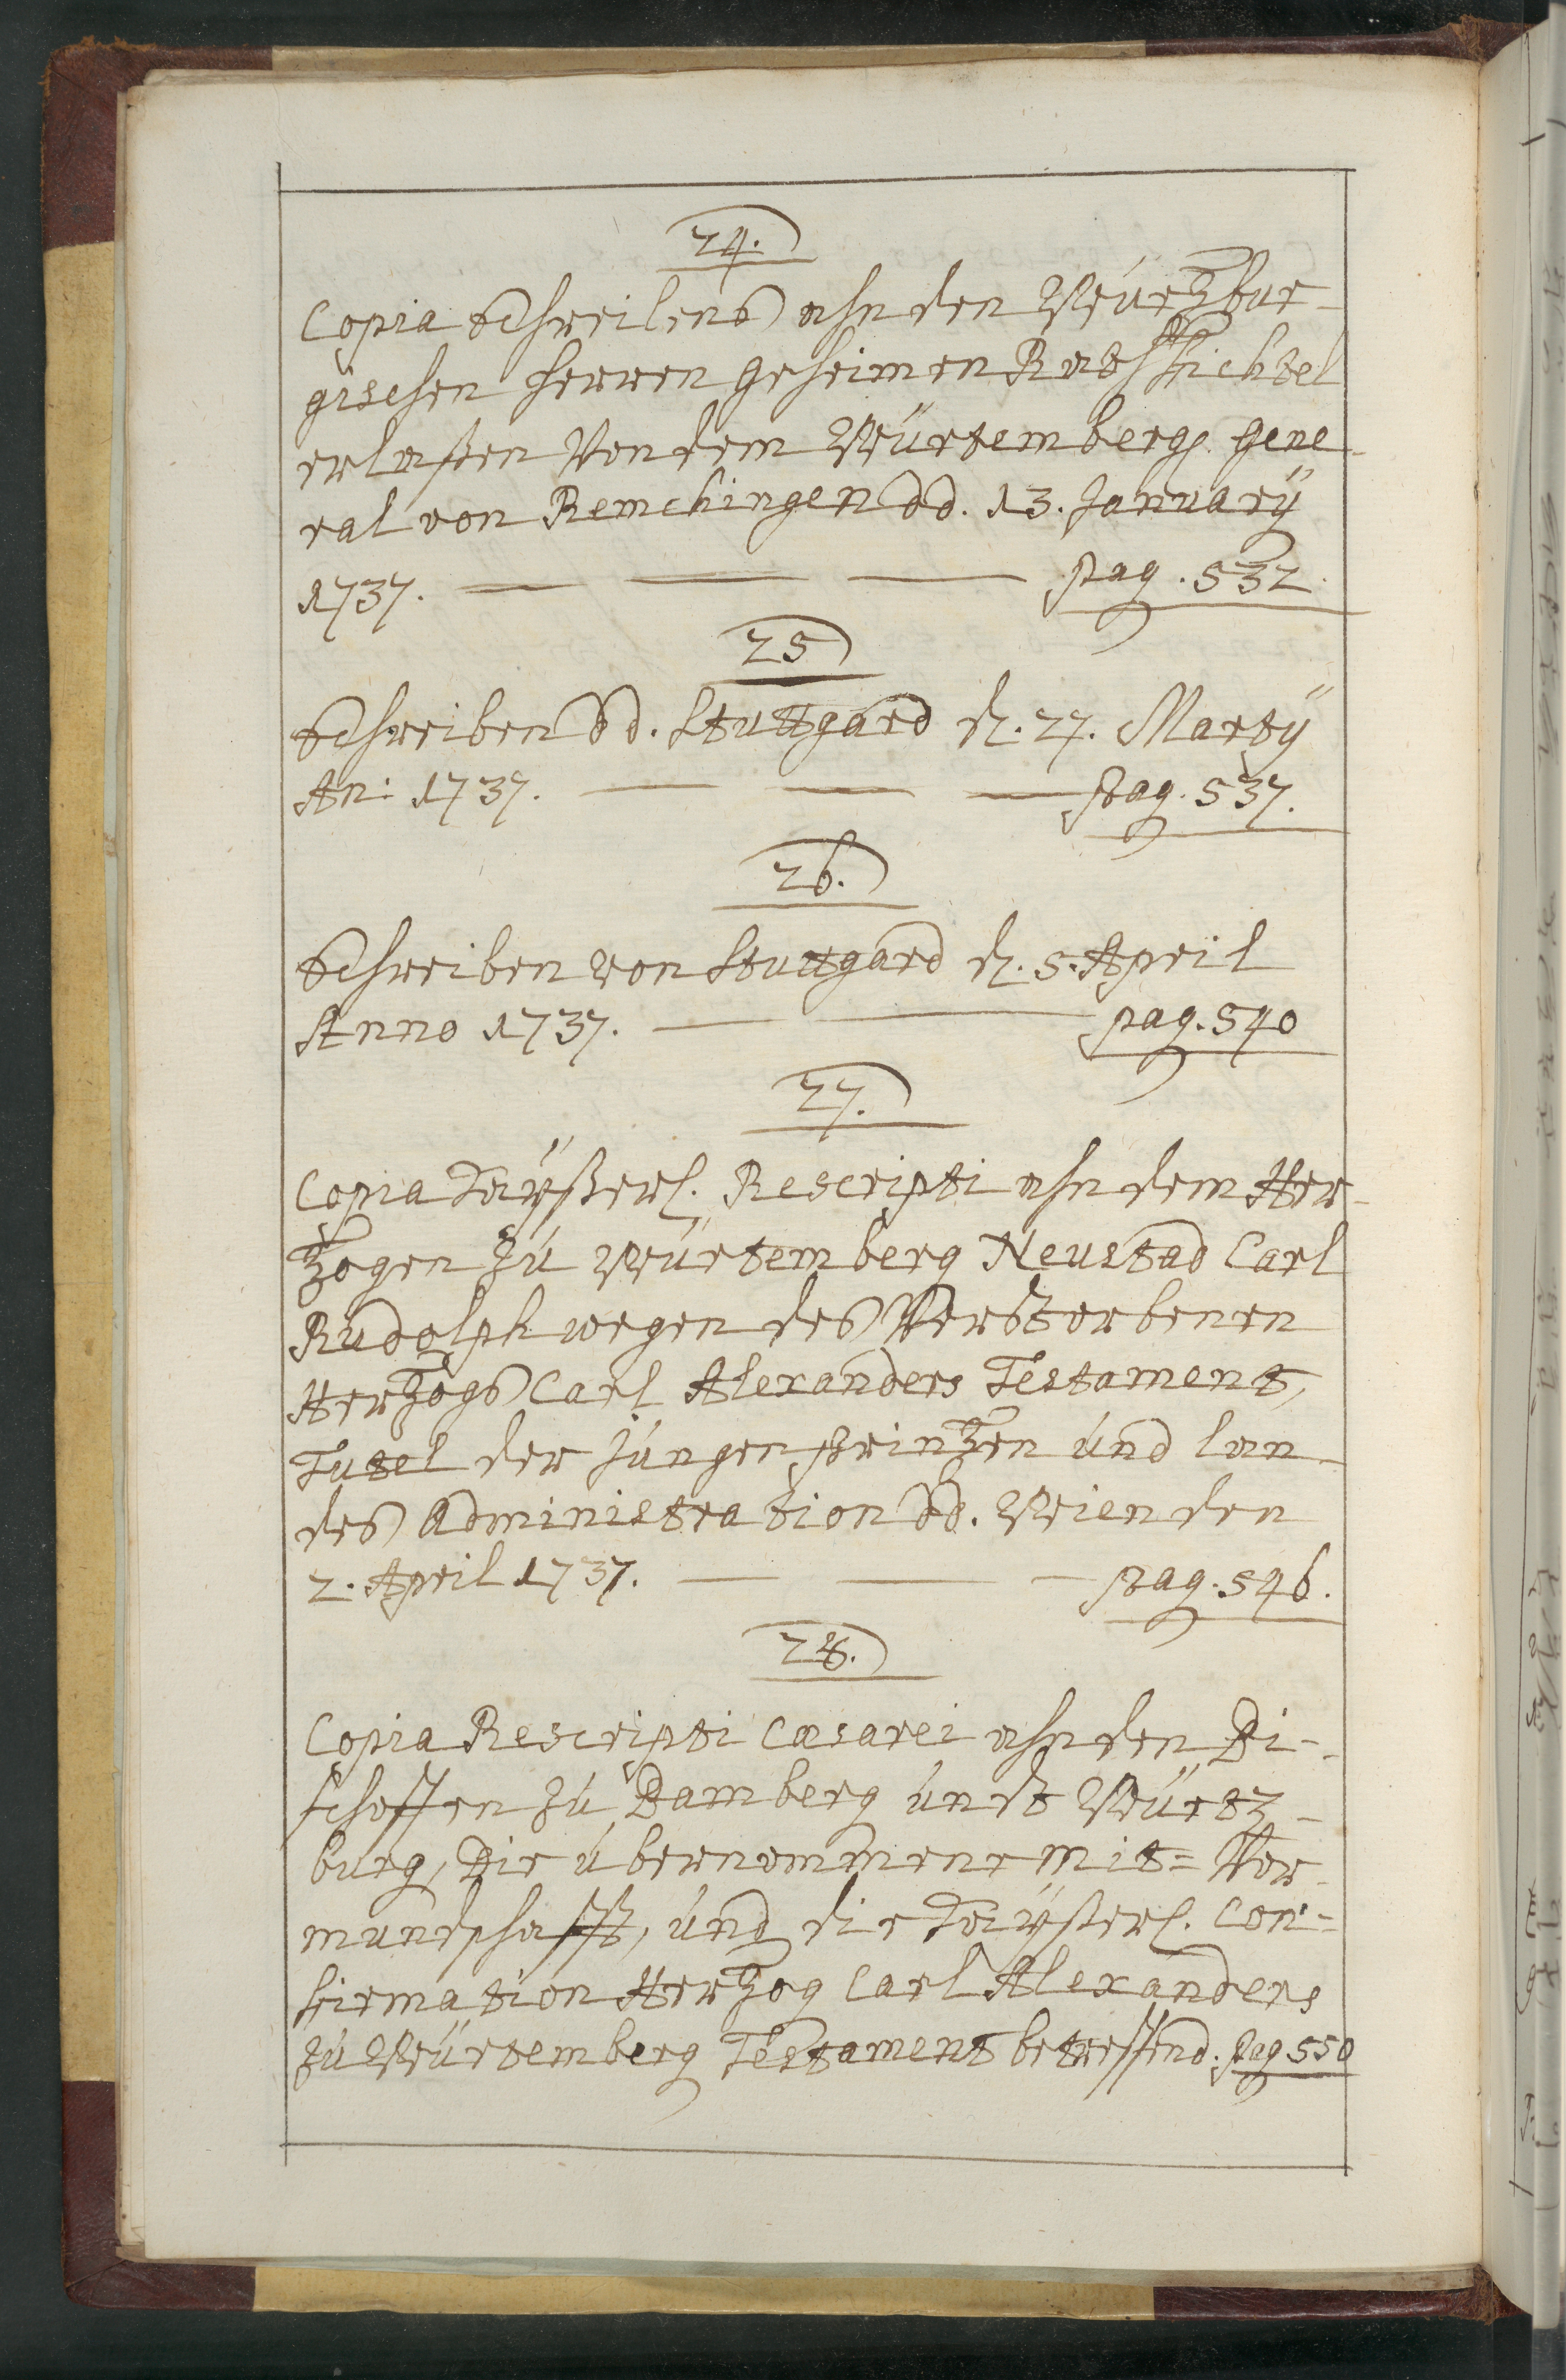 24.
Copia Schreibens ahn den Würtzbur-
gischen Herren Geheimen Rath Fichtel
erlaßen Von dem Würtemberg. Gene-
ral von Remchingen dd. 13. Januarÿ
1737. — — — pag. 532.
25
Schreiben dd. Stuttgard d. 27. Martÿ
An: 1737. — — — pag. 537.
26.
Schreiben von Stuttgard d. 5. April
Anno 1737. — — pag. 540
27.
Copia Kaÿßerl. Rescripti ahn dem Her-
zogen zu Würtemberg Neustad Carl
Rudolph wegen des Verstorbenen
Herzogs Carl Alexanders Testament,
Tutel der Jungen Printzen und Lan-
des Administration dd. Wien den
2. April 1737. — — — pag. 546.
28.
Copia Rescripti Cæsarei ahn den Bi-
schoffen zu Bamberg undt Würtz-
burg, Die übernommene Mit= Vor-
mundschafft, und die Kaÿserl. Con=
firmation Herzog Carl Alexanders
zu Würtemberg Testament betreffend. pag 550